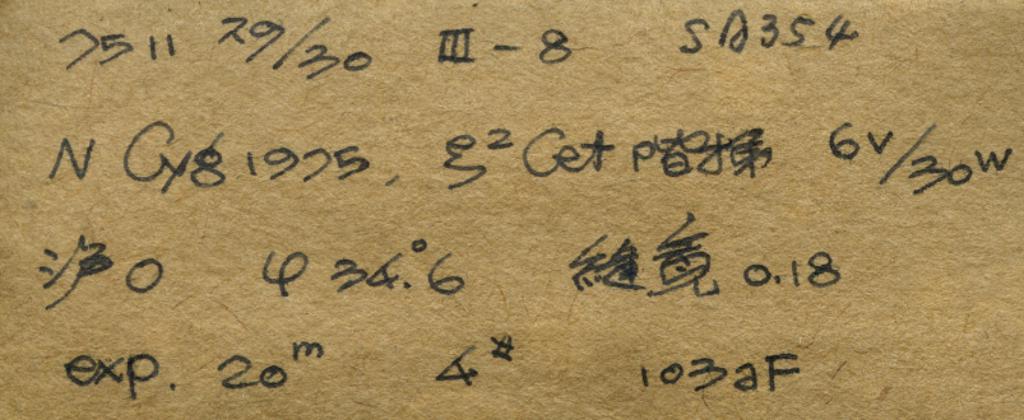 7511 29/30 III-8 SA354
N Cyg 1975, ξ² Cet 階梯 6V/30W
沪0 φ 34.°6 縫寛 0.18
exp. 20ᵐ 4* 103aF